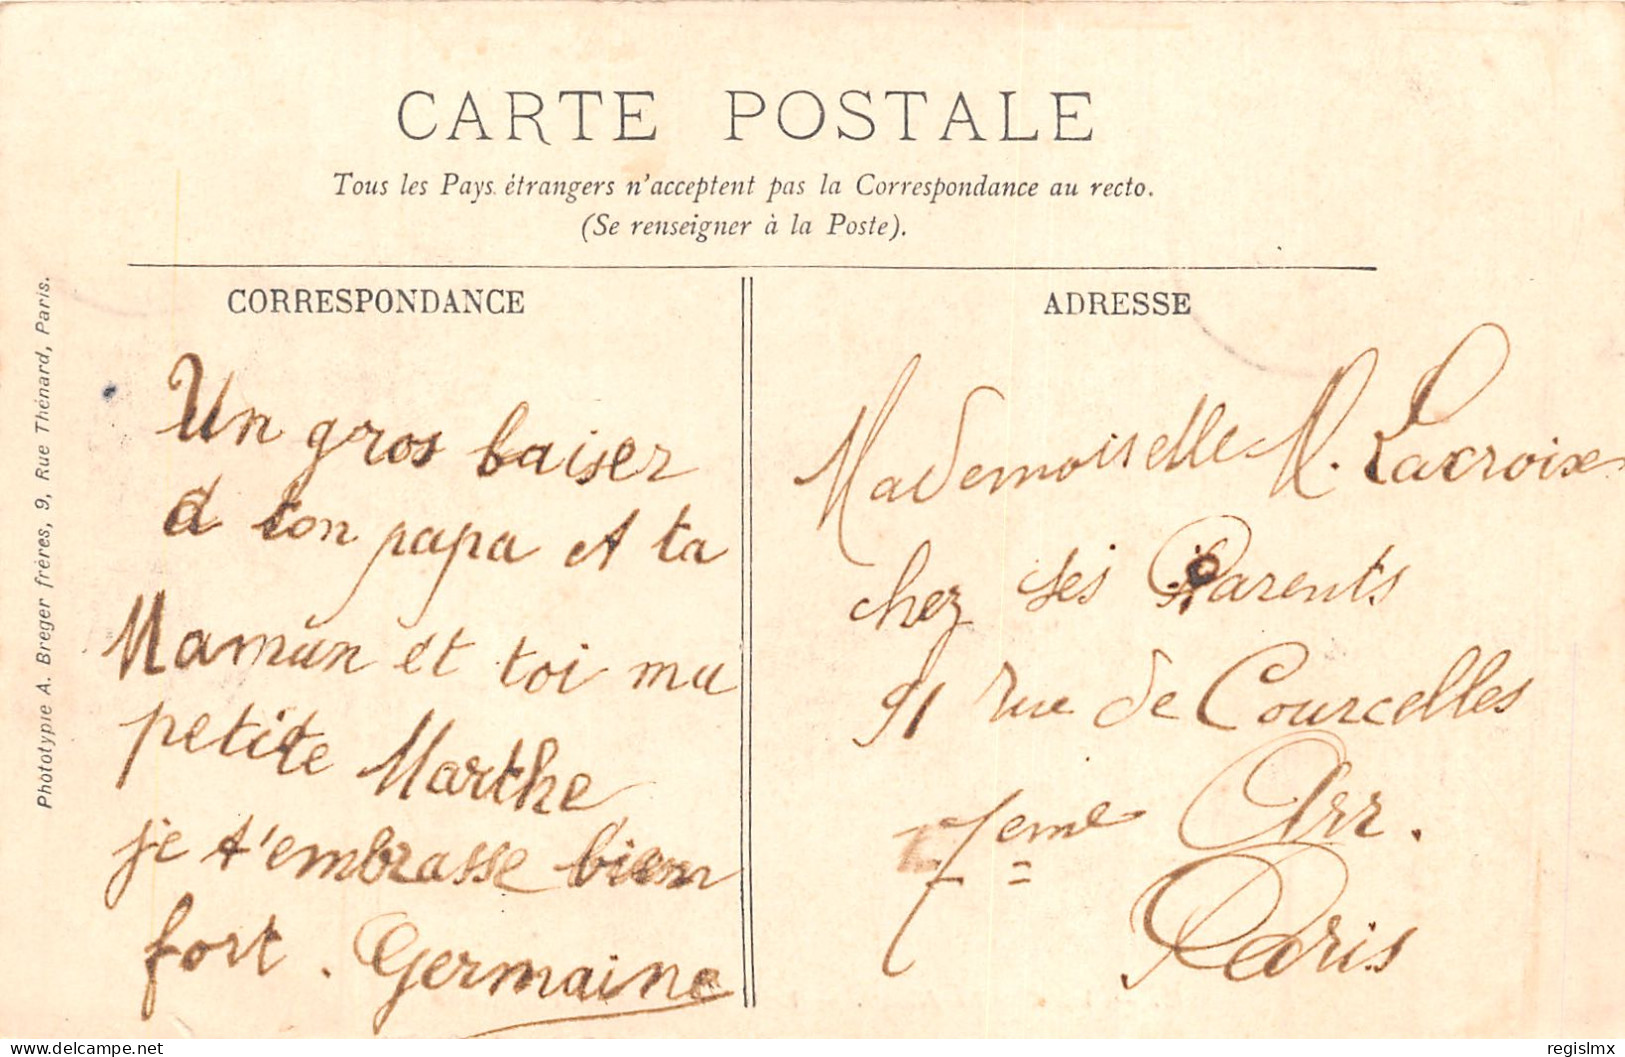 CARTE POSTALE
Tous les Pays étrangers n'acceptent pas la Correspondance au recto.
(Se renseigner à la Poste).
CORRESPONDANCE
Un gros baiser
à ton papa et ta
Maman et toi ma
petite Marthe
je t'embrasse bien
fort. Germaine
ADRESSE
Mademoiselle M. Lacroix
chez ses Parents
91 rue de Courcelles
17eme Arr.
Paris
Phototypie A. Breger frères, 9, Rue Thénard, Paris.
delcampe.net
regislmx